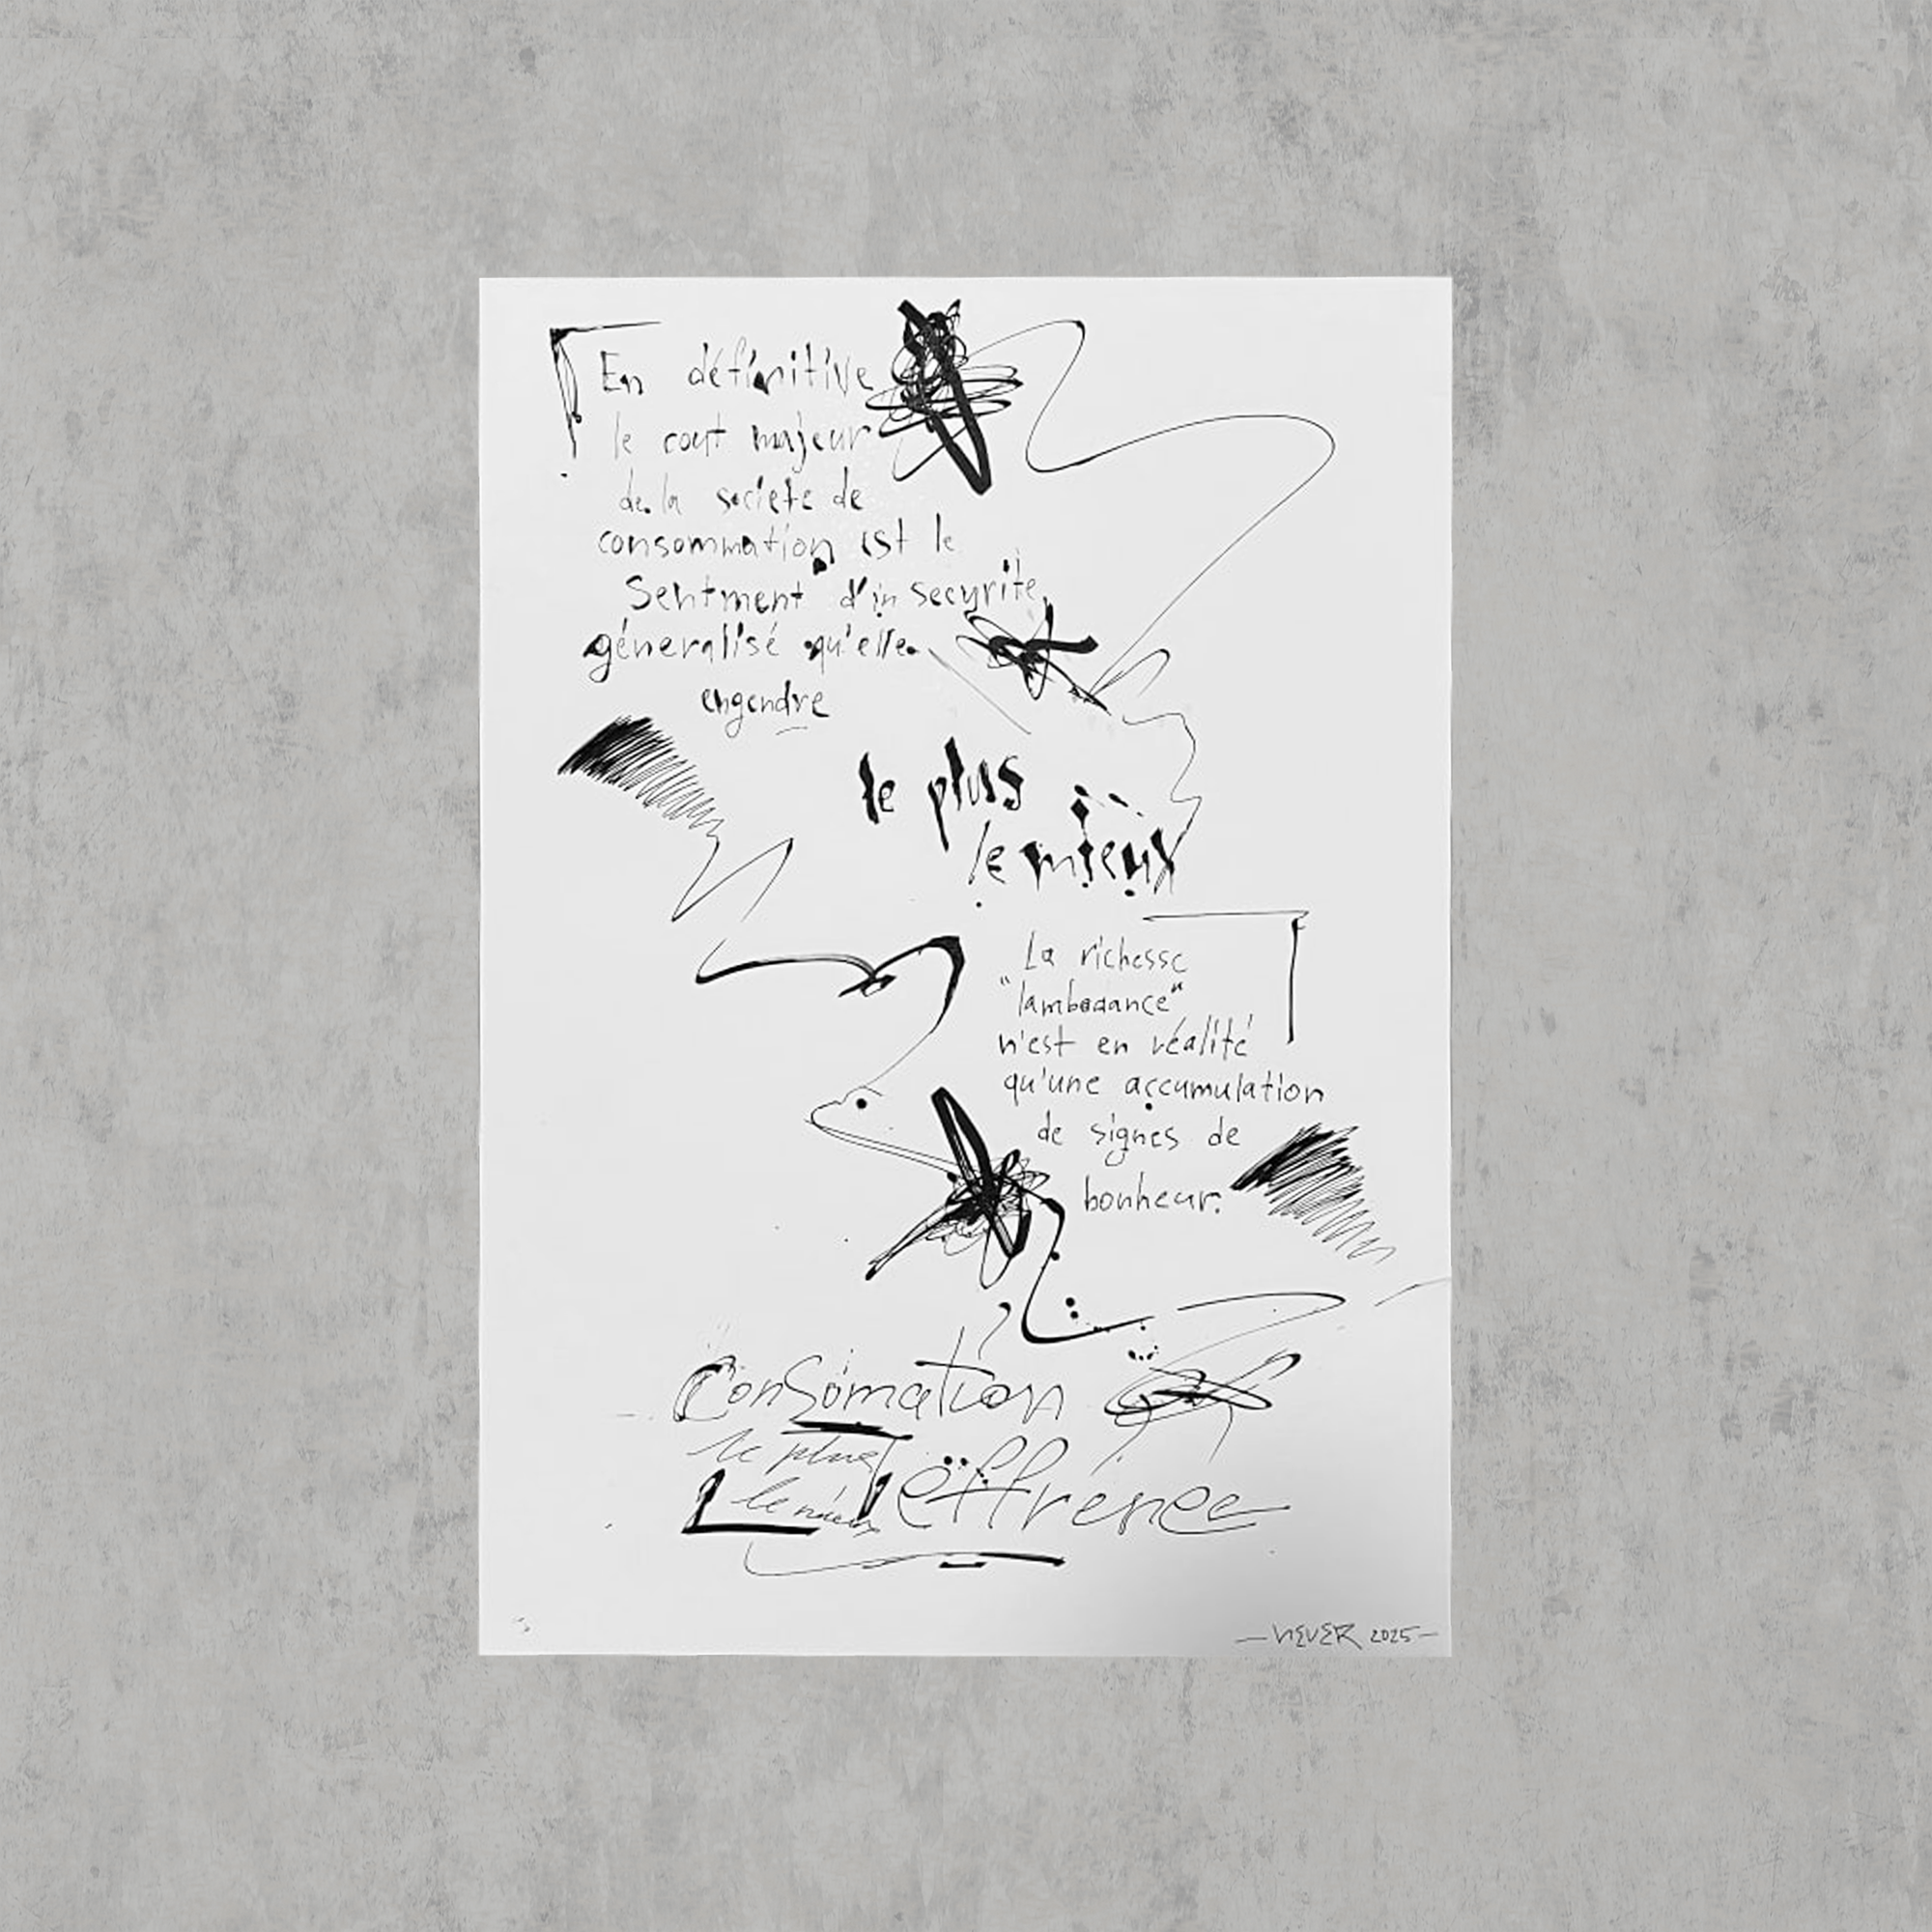 En définitive
le cout majeur
de la societe de
consommation est le
Sentment d'in securite
géneralisé qu'elle
engendre
le plus
le mieux
La richesse
"lambodance"
n'est en réalité
qu'une accumulation
de signes de
bonheur.
Consomation
le plus
le mieux
effrenee
— NEVER 2025 —